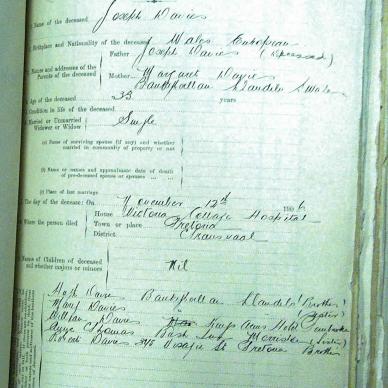 Name of the deceased Joseph Davies
Birthplace and Nationality of the deceased Wales European
Names and addresses of the Parents of the deceased
Father Joseph Davies (Deceased)
Mother Margaret Davies
Llandilo S Wales
Age of the deceased 33 years
Condition in life of the deceased
Married or Unmarried Widower or Widow Single
(a) Name of surviving spouse (if any) and whether married in community of property or not
(b) Name or names and approximate date of death of pre-deceased spouse or spouses
(c) Place of last marriage
The day of the decease: On November 12th 1906
Where the person died
House Victoria Cottage Hospital
Town or place Pretoria
District Transvaal
Names of Children of deceased and whether majors or minors Nil
Davies Llandilo (Brother)
Mary Davies (Sister)
William Davies Kings Arms Hotel
Thomas Bash Inn Morriston (Sister)
Robert Davies St Pretoria Brother